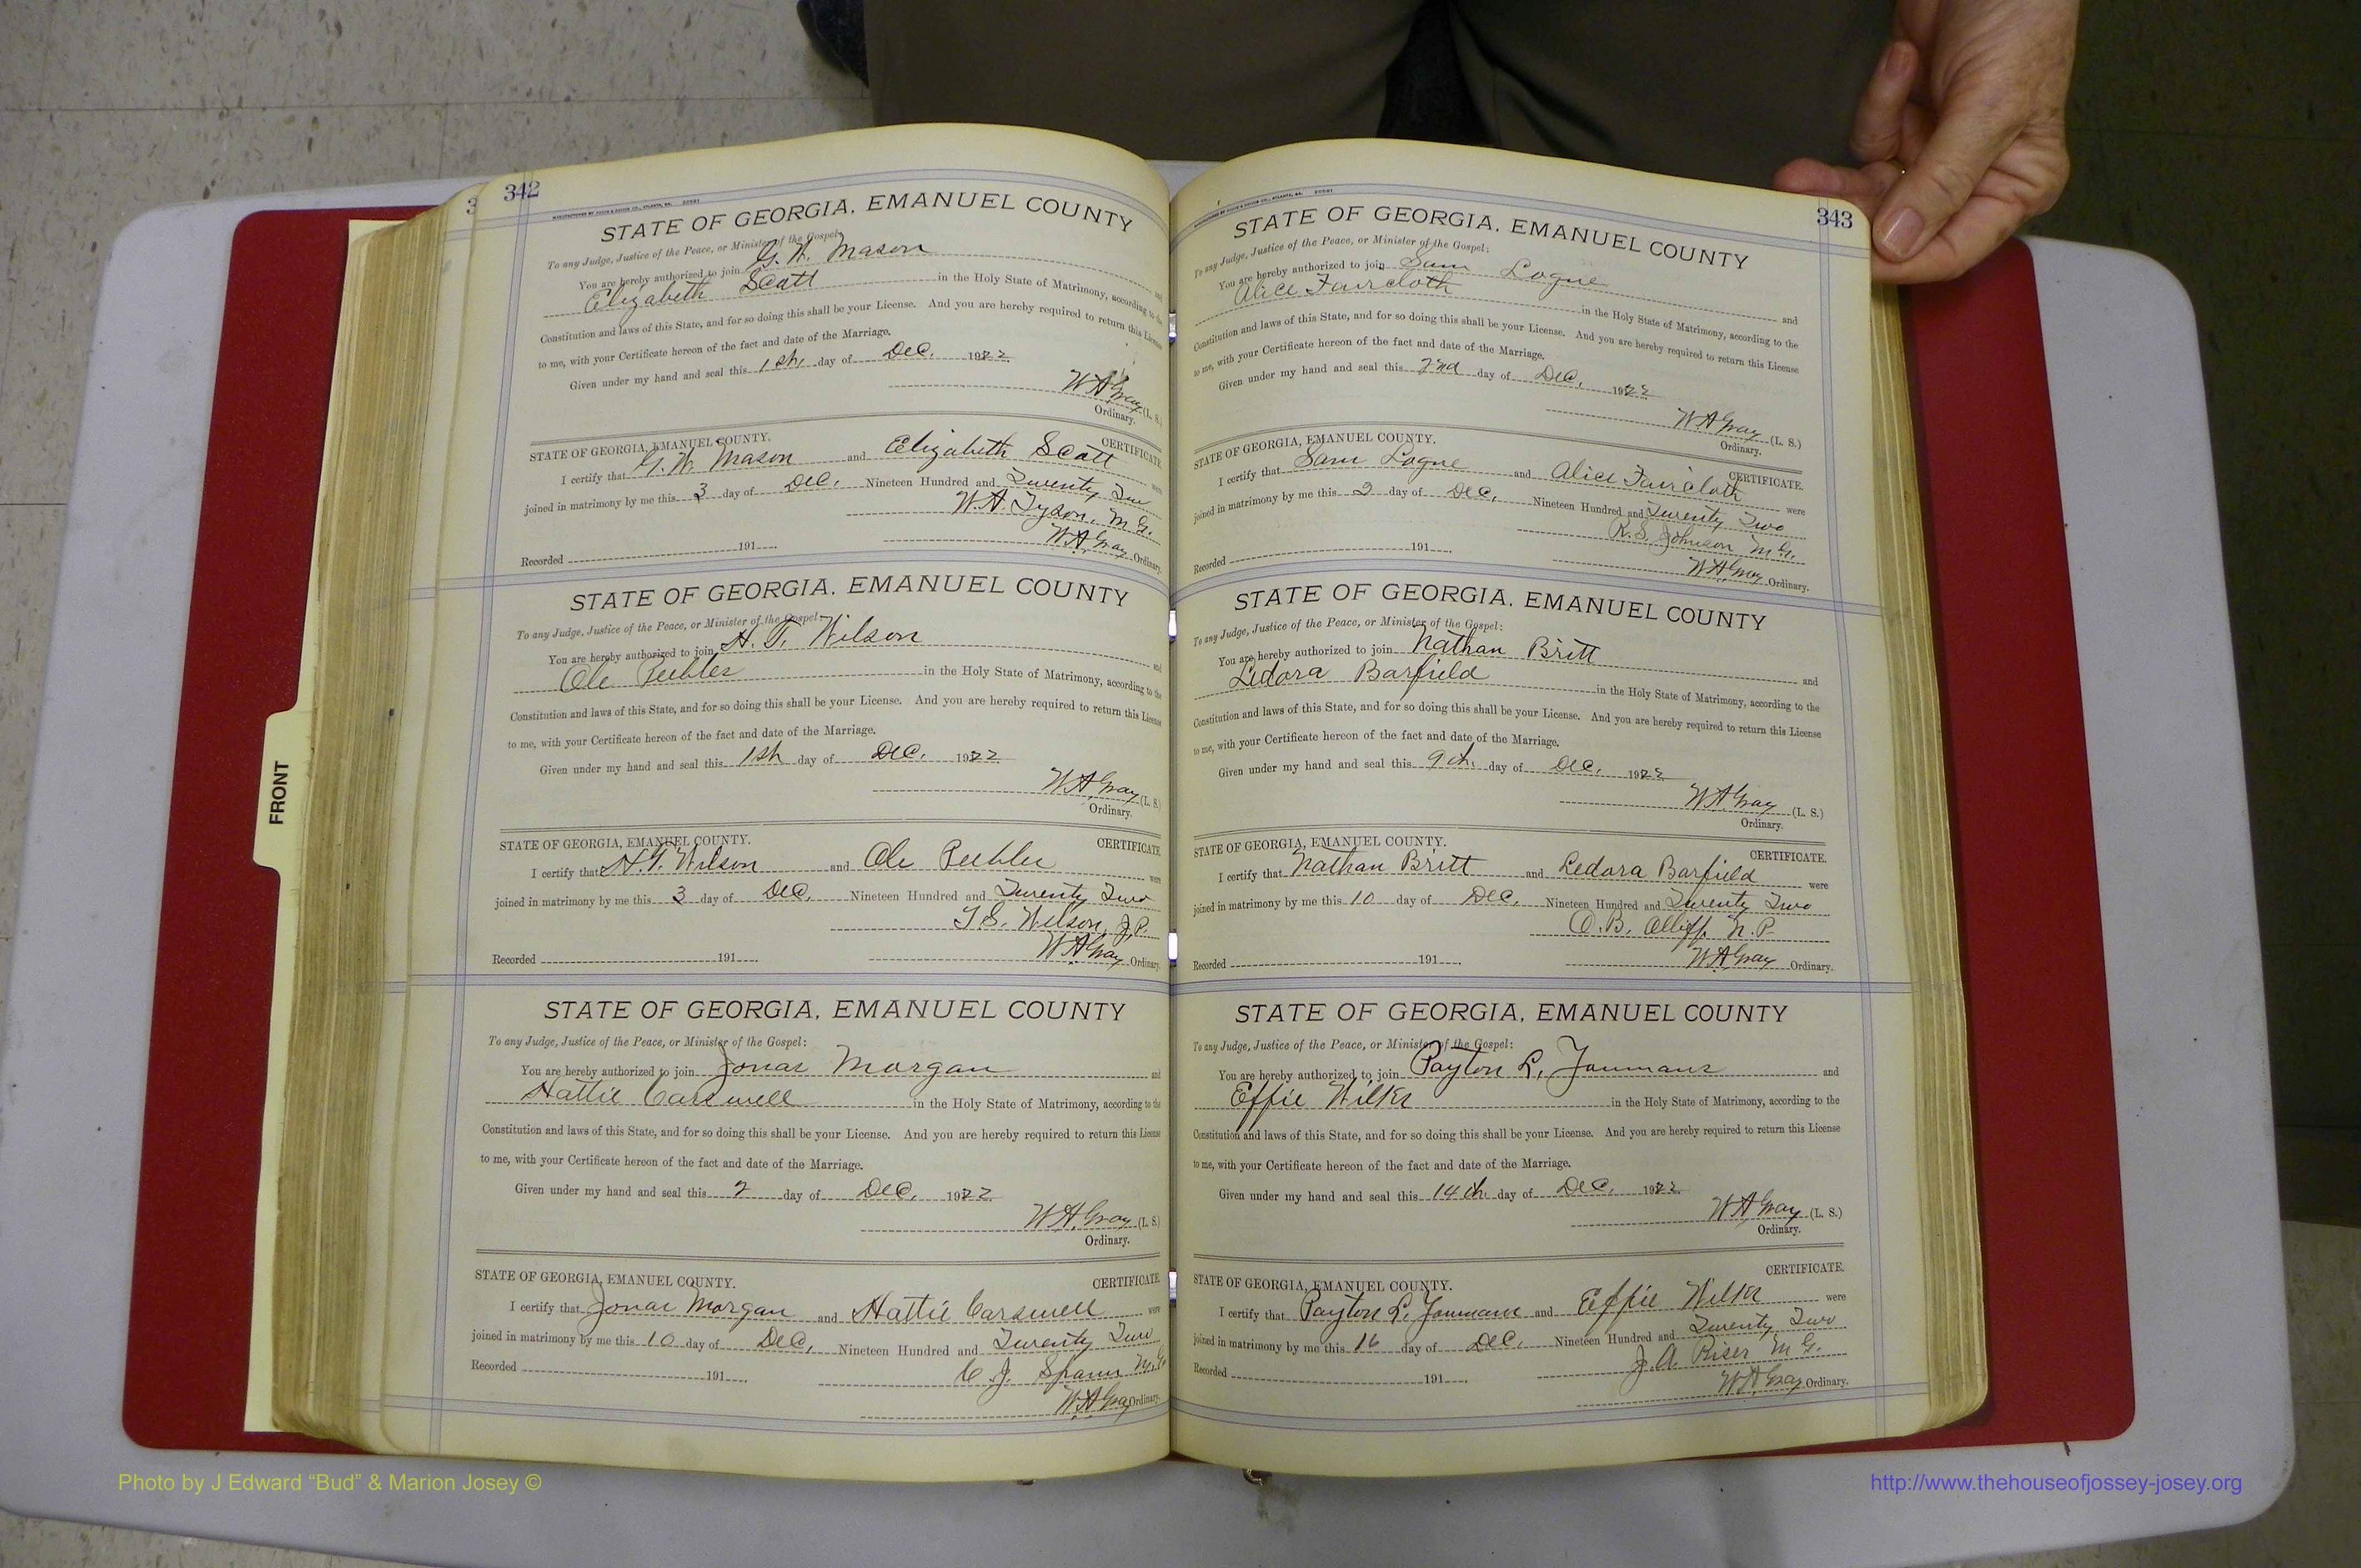 342
STATE OF GEORGIA, EMANUEL COUNTY
To any Judge, Justice of the Peace, or Minister of the Gospel:
You are hereby authorized to join G. W. Mason and
Elizabeth Scott in the Holy State of Matrimony, according to the
Constitution and laws of this State, and for so doing this shall be your License. And you are hereby required to return this License
to me, with your Certificate hereon of the fact and date of the Marriage.
Given under my hand and seal this 1st day of Dec. 1922
W A Gray (L. S.)
Ordinary.
STATE OF GEORGIA, EMANUEL COUNTY. CERTIFICATE
I certify that G. W. Mason and Elizabeth Scott were
joined in matrimony by me this 3 day of Dec. Nineteen Hundred and Twenty Two
W. A. Tyson, M.G.
Recorded 191 W A Gray Ordinary.
STATE OF GEORGIA, EMANUEL COUNTY
To any Judge, Justice of the Peace, or Minister of the Gospel:
You are hereby authorized to join H. T. Wilson and
Ole Peebles in the Holy State of Matrimony, according to the
Constitution and laws of this State, and for so doing this shall be your License. And you are hereby required to return this License
to me, with your Certificate hereon of the fact and date of the Marriage.
Given under my hand and seal this 1st day of Dec. 1922
W A Gray (L. S.)
Ordinary.
STATE OF GEORGIA, EMANUEL COUNTY. CERTIFICATE
I certify that H. T. Wilson and Ole Peebles were
joined in matrimony by me this 3 day of Dec. Nineteen Hundred and Twenty Two
Wilson, J.P.
Recorded 191 W A Gray Ordinary.
STATE OF GEORGIA, EMANUEL COUNTY
To any Judge, Justice of the Peace, or Minister of the Gospel:
You are hereby authorized to join Jonas Morgan and
Hattie Carswell in the Holy State of Matrimony, according to the
Constitution and laws of this State, and for so doing this shall be your License. And you are hereby required to return this License
to me, with your Certificate hereon of the fact and date of the Marriage.
Given under my hand and seal this 2 day of Dec. 1922
W A Gray (L. S.)
Ordinary.
STATE OF GEORGIA, EMANUEL COUNTY. CERTIFICATE
I certify that Jonas Morgan and Hattie Carswell were
joined in matrimony by me this 10 day of Dec. Nineteen Hundred and Twenty Two
Recorded 191 C. J. Spann M.G.
W A Gray Ordinary.
343
STATE OF GEORGIA, EMANUEL COUNTY
To any Judge, Justice of the Peace, or Minister of the Gospel:
You are hereby authorized to join Sam Logue and
Alice Faircloth in the Holy State of Matrimony, according to the
Constitution and laws of this State, and for so doing this shall be your License. And you are hereby required to return this License
to me, with your Certificate hereon of the fact and date of the Marriage.
Given under my hand and seal this 2nd day of Dec. 1922
W A Gray (L. S.)
Ordinary.
STATE OF GEORGIA, EMANUEL COUNTY. CERTIFICATE.
I certify that Sam Logue and Alice Faircloth were
joined in matrimony by me this 2 day of Dec. Nineteen Hundred and Twenty Two
R. S. Johnson M.G.
Recorded 191 W A Gray Ordinary.
STATE OF GEORGIA, EMANUEL COUNTY
To any Judge, Justice of the Peace, or Minister of the Gospel:
You are hereby authorized to join Nathan Britt and
Ledora Barfield in the Holy State of Matrimony, according to the
Constitution and laws of this State, and for so doing this shall be your License. And you are hereby required to return this License
to me, with your Certificate hereon of the fact and date of the Marriage.
Given under my hand and seal this 9th day of Dec. 1922
W A Gray (L. S.)
Ordinary.
STATE OF GEORGIA, EMANUEL COUNTY. CERTIFICATE.
I certify that Nathan Britt and Ledora Barfield were
joined in matrimony by me this 10 day of Dec. Nineteen Hundred and Twenty Two
O. B. Olliff N.P.
Recorded 191 W A Gray Ordinary.
STATE OF GEORGIA, EMANUEL COUNTY
To any Judge, Justice of the Peace, or Minister of the Gospel:
You are hereby authorized to join Payton L. Youmans and
Effie Wilkes in the Holy State of Matrimony, according to the
Constitution and laws of this State, and for so doing this shall be your License. And you are hereby required to return this License
to me, with your Certificate hereon of the fact and date of the Marriage.
Given under my hand and seal this 14th day of Dec. 1922
W A Gray (L. S.)
Ordinary.
STATE OF GEORGIA, EMANUEL COUNTY. CERTIFICATE.
I certify that Payton L. Youmans and Effie Wilkes were
joined in matrimony by me this 16 day of Dec. Nineteen Hundred and Twenty Two
Recorded 191 J. A. Riser M.G.
W A Gray Ordinary.
FRONT
Photo by J Edward “Bud” & Marion Josey ©
http://www.thehouseofjossey-josey.org